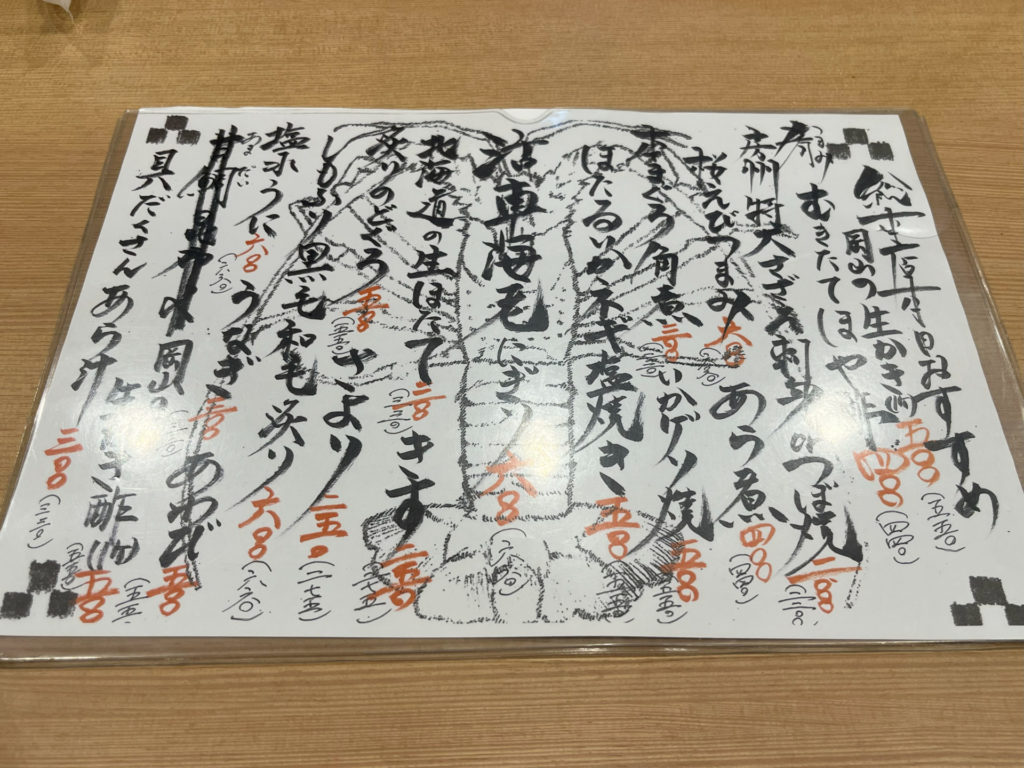 総本店本日おすすめ
岡山の生かき酢 五〇〇 (五五〇)
むきたてほや酢 四〇〇 (四四〇)
房州 特大さざえ刺身 つぼ焼
桜えびつまみ 六〇〇 あら煮 四〇〇 (四四〇)
本まぐろ角煮 三〇〇 (三三〇) いかげソ焼 五〇〇 (五五〇)
ほたるいかネギ塩焼き 五〇〇
活車海老にぎり 六〇〇 (六六〇)
北海道の生ほたて 三〇〇 (三三〇) きす
炙りのどぐろ 五〇〇 (五五〇) さより 二五〇 (二七五)
黒毛和毛 炙り 六〇〇 (六六〇)
塩水うに 六〇〇 (六六〇) うなぎ 三〇〇 (三三〇) あわび 五〇〇 (五五〇)
岡山の
具だくさん あら汁 三〇〇 (三三〇)